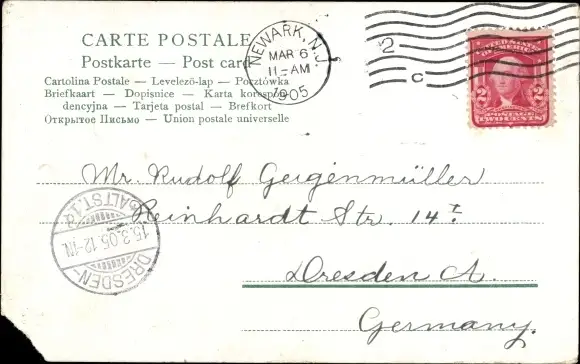 CARTE POSTALE
Postkarte — Post card
Cartolina Postale — Levelezö-lap — Pocztówka
Briefkaart — Dopisnice — Karta korespon-
dencyjna — Tarjeta postal — Brefkort
Открытое Письмо — Union postale universelle
NEWARK, N.J.
MAR 6
11-AM
1905
2
C
UNITED STATES
2 2
TWO CENTS
Mr. Rudolf Geigenmüller
Reinhardt Str. 14 I.
Dresden A.
Germany.
DRESDEN-ALTST.
15.3.05.12-1N.